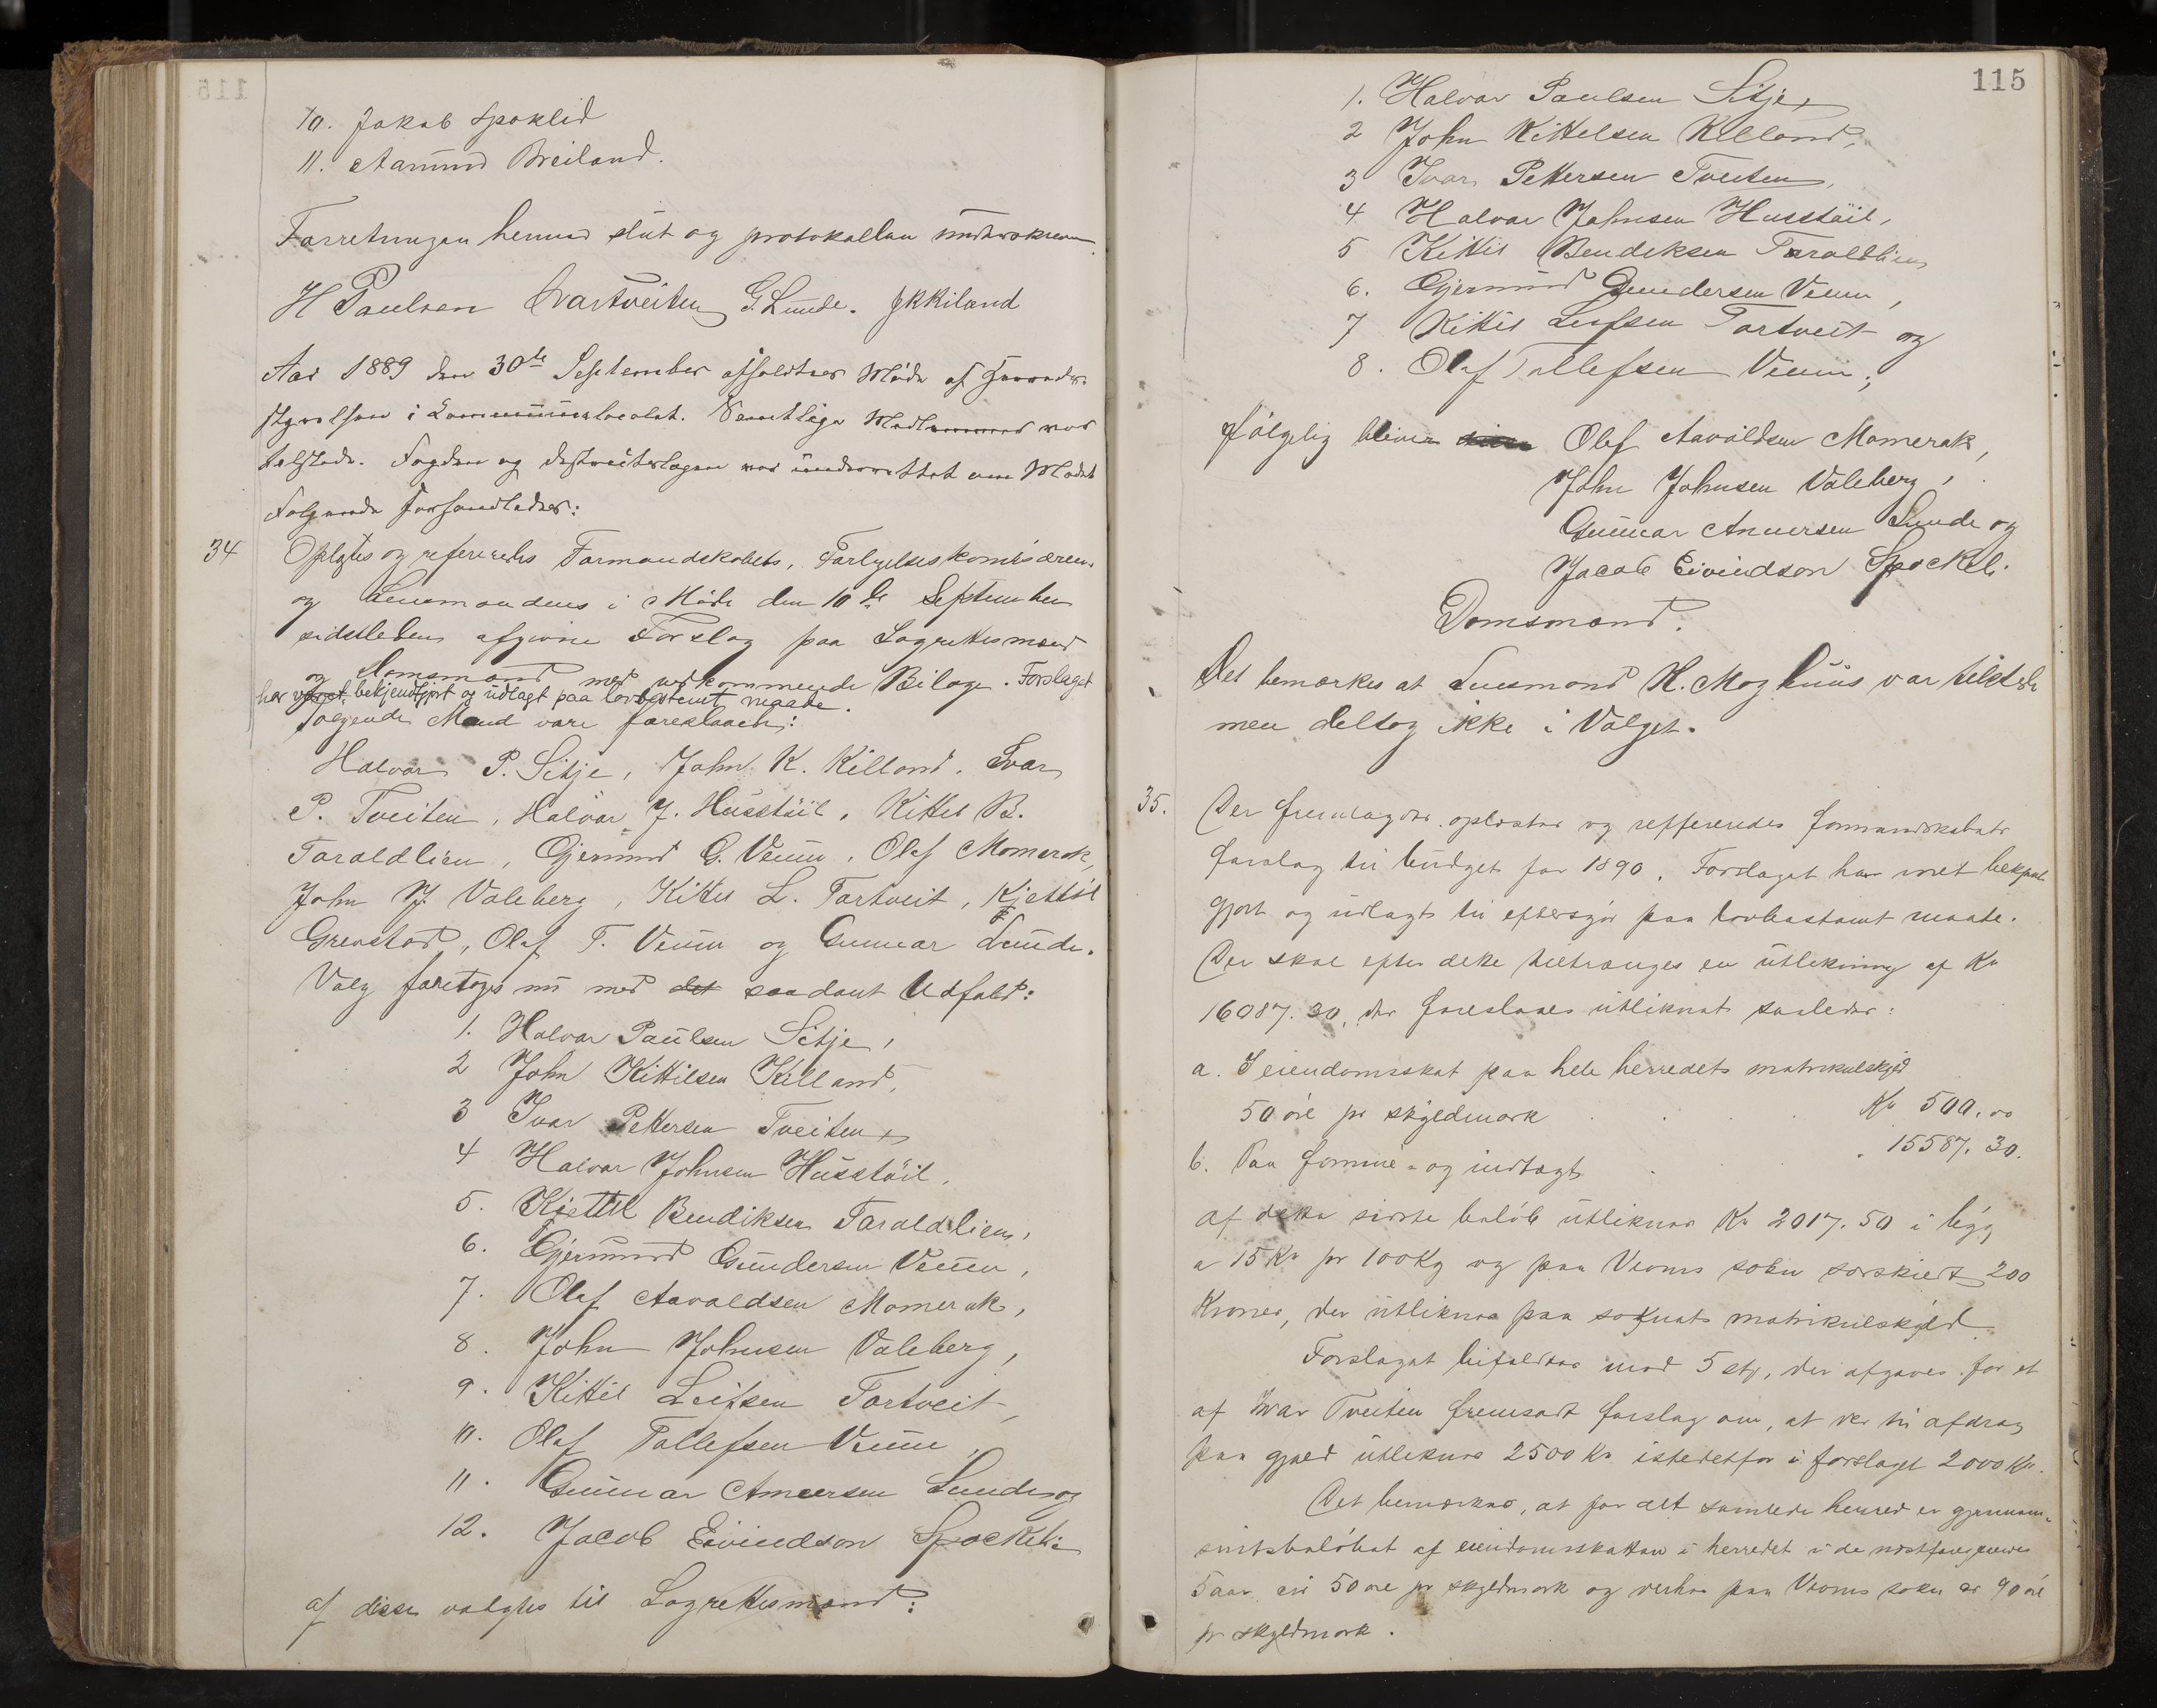 10. Jakob Spoklid
11. Aamund Breiland.
Forretningen hermed slut og protokollen
H Paulsen Ivar Tveiten G. Lunde. JKKiland
Aar 1889 den 30te September afholdtes Møde af Herreds-
styrelsen i Kommunelocalet. Samtlige Medlemmer var
tilstede. Fogden og Distriktslægen var underrettet om Mødet
Følgende Forhandledes:
34 Oplæstes og refereredes Formandskabets, Forligelseskomisærens
og Lensmandens i Møde den 10de September
sidstleden afgivne Forslag paa Lagrettesmænd
og Domsmænd med vedkommende Bilage. Forslaget
har været bekjendtgjort og udlagt paa lovbestemt maade.
Følgende Mænd vare foreslaaede:
Halvor P. Sitje, John K. Killand, Ivar
P. Tveiten, Halvor J. Husstöil, Kittel B.
Taraldlien, Gjermund G. Venm, Olaf Momrak,
John J. Valeberg, Kittil L. Tortveit, Kjettil
Grenstad, Olaf T. Venm og Gunnar Lunde.
Valg foretoges nu med det saadant Udfald:
1. Halvor Paulsen Sitje,
2 John Kittilsen Killand,
3 Ivar Pettersen Tveiten,
4 Halvor Johnsen Husstöil,
5. Kjettil Bendiksen Taraldlien,
6. Gjermund Gundersen Venm,
7. Olaf Aavaldsen Momerak,
8. John Johnsen Valeberg,
9. Kittil Leifsen Tortveit,
10. Olaf Tallefsen Venm,
11. Gunnar Anversen Lunde og
12. Jacob Eivindson Spockeli
af disse valgtes til Lagrettesmænd:
115
1. Halvor Paulsen Sitje,
2 John Kittelsen Killand,
3 Ivar Pettersen Tveiten,
4 Halvor Johnsen Husstöil,
5 Kittil Bendiksen Taraldlien,
6. Gjermund Gundersen Venm,
7 Kittil Leifsen Tortveit og
8. Olaf Tallefsen Venm;
følgelig bliver Olaf Aavaldsen Momerak,
John Johnsen Valeberg,
Gunnar Anversen Lunde og
Jacob Eivindson Spockeli.
Domsmænd.
Det bemærkes at Lensmand H. Moghuus var tilstede
men deltog ikke i Valget.
35. Der fremlagdes oplæstes og refferendes formandskabets
forslag til budget for 1890. Forslaget har vret bekjent
gjort og udlagt til eftersyn paa lovbestemt maate.
Der skal efter dette tiltrænges en utlikning af Kr
16087.30, der foreslaaes utliknet saaledes:
a. I eiendomsskat paa hele herredets matrikulskyld
50 öre pr skyldmark . . . Kr 500.00
b. Paa formue- og indtægt . . . 15587.30.
af dette sidste beløb utliknes Kr 2017.50 i byg
a 15 Kr pr 100Kg og paa Vrams sokn særskildt 200
Kroner, der utliknes paa soknets matrikulskyld.
Forslaget bifaldtes mod 5 st, der afgaves for et
af Ivar Tveiten fremsadt forslag om, at der til afdrag
paa gjæld utliknes 2500 Kr istedetfor i forslaget 2000 Kr.
Det bemærkes, at for det samlede herred er gjennem-
snitsbeløbet af eiendomsskatten i herredet i de nestforegaaende
5 aar 50 öre pr skyldmark og paa Vrams sokn er 90 öre
pr skyldmark.